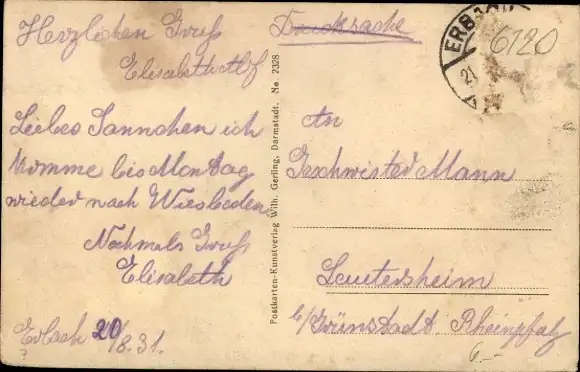 Herzlichen Gruß
Elisabeth
Liebes Sannchen ich
komme bis Montag
wieder nach Wiesbaden
Nochmals Gruß
Elisabeth
Erbach 20/8.31.
Postkarten-Kunstverlag Wilh. Gerling, Darmstadt. No. 2328
Drucksache
ERBACH
21
6120
An
Geschwister Mann
Leutersheim
b/Grünstadt. Rheinpfalz
6.–